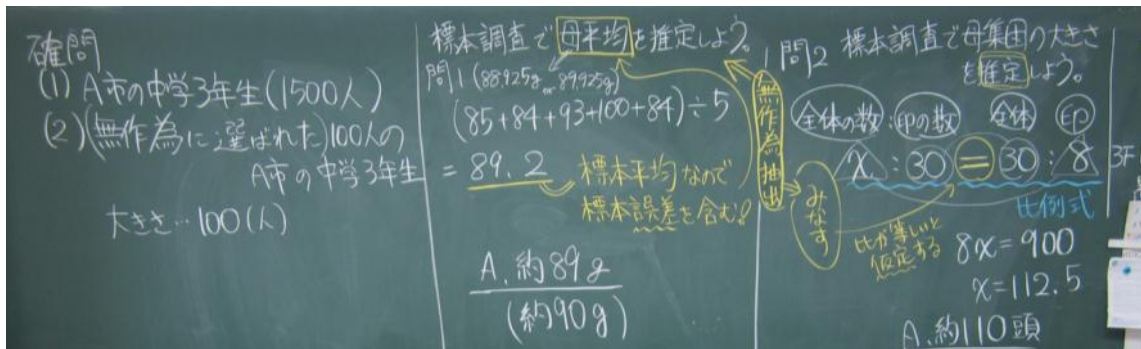 確問
(1) A市の中学3年生(1500人)
(2)(無作為に選ばれた)100人の
A市の中学3年生
大きさ…100(人)
標本調査で母平均を推定しよう。
問1 (88.925g or 89.925g)
(85+84+93+100+84)÷5
= 89.2
標本平均なので
標本誤差を含む!
A.約89g
(約90g)
無作為抽出
みなす
問2 標本調査で母集団の大きさ
を推定しよう。
全体の数:印の数 全体 印
x:30=30:8
比例式
比が等しいと
仮定する
8x=900
x=112.5
A.約110頭